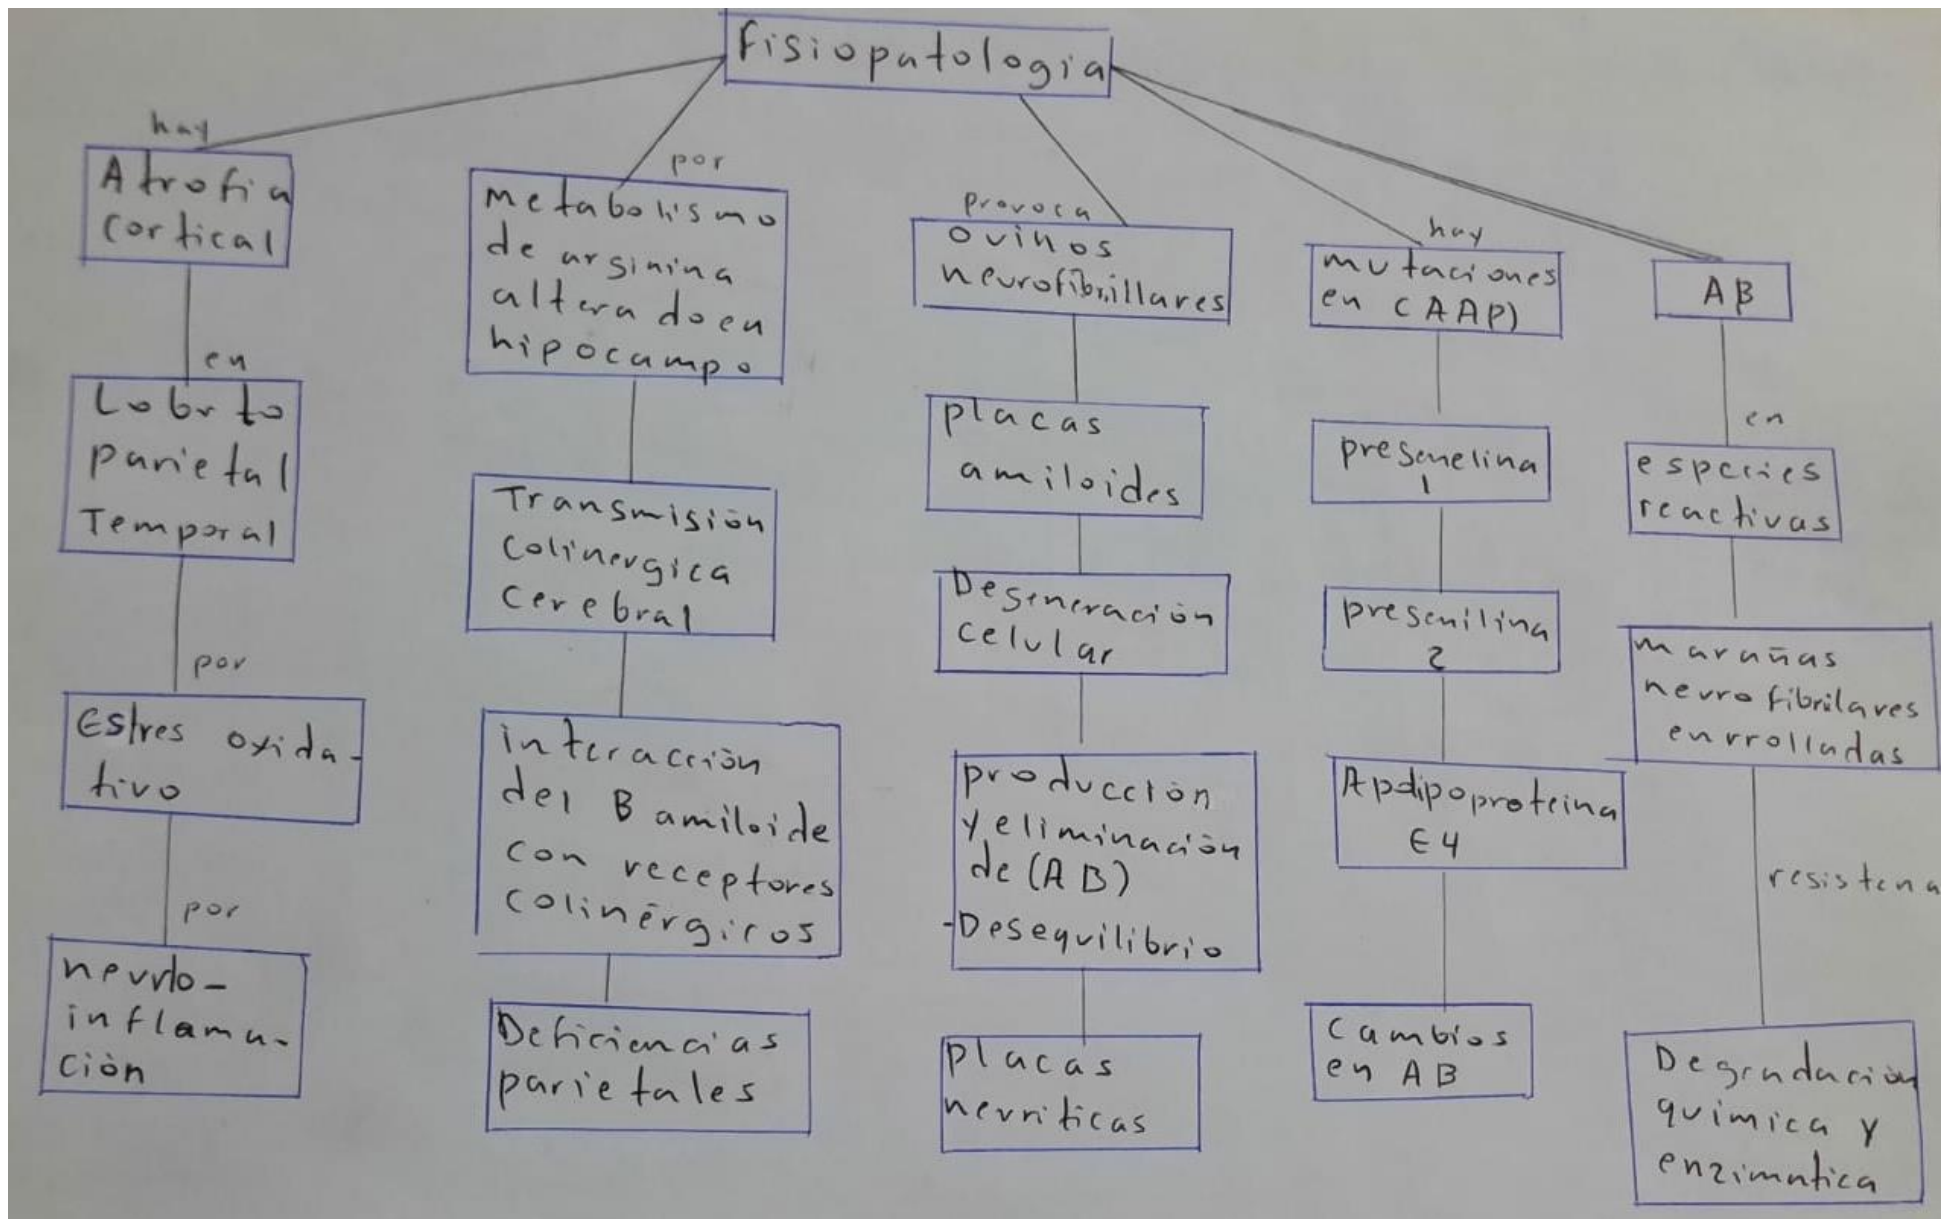 fisiopatologia
hay
Atrofia
cortical
en
parietal
Temporal
por
Estres oxida-
tivo
por
inflama-
ción
por
metabolismo
de arginina
alterado en
hipocampo
Transmisión
colinergica
cerebral
interacción
del B amiloide
con receptores
colinérgicos
Deficiencias
parietales
provoca
ovillos
neurofibrillares
placas
amiloides
Degeneración
celular
producción
y eliminación
de (AB)
-Desequilibrio
placas
neuriticas
hay
mutaciones
en (AAP)
presenelina
1
presenilina
2
E4
cambios
en AB
Aβ
en
especies
reactivas
marañas
neurofibrilares
enrrolladas
Degradación
química y
enzimatica